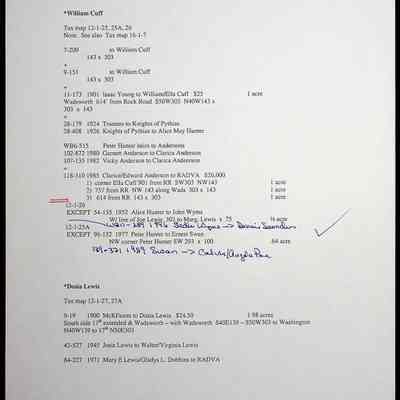 *William Cuff
Tax map 12-1-25, 25A, 26
Note: See also Tax map 16-1-7
7-200 to William Cuff
143 x 303
+
9-151 to William Cuff
143 x 303
+
11-173 1901 Isaac Young to William/Ella Cuff $25 1 acre
Wadsworth 614' from Rock Road S50W303 N40W143 x
303 x 143
+
28-179 1924 Trustees to Knights of Pythias
28-408 1926 Knights of Pythias to Alice May Hunter
WB6-515 Peter Hunter intro to Andersons
102-872 1980 Garnett Anderson to Clarice Anderson
107-135 1982 Vicky Anderson to Clarice Anderson
+
118-510 1985 Clarice/Edward Anderson to RADVA $26,000
1) corner Ella Cuff 901 from RR SW303 NW143 1 acre
2) 757 from RR NW 143 along Wads 303 x 143 1 acre
3) 614 from RR 143 x 303 1 acre
12-1-26
EXCEPT 54-155 1952 Alice Hunter to John Wynn
W/ line of Joe Lewis 303 to Marg. Lewis x 75 ½ acre
1996 Sadie Wynn → Dennis Saunders
12-1-25A
EXCEPT 96-152 1977 Peter Hunter to Ernest Swan
NW corner Peter Hunter SW 293 x 100 .64 acre
1989 Swan → Calvin/Angela Pace
*Dosia Lewis
Tax map 12-1-27, 27A
9-19 1900 McKFauss to Dosia Lewis $24.50 1.98 acres
South side 17th extended & Wadsworth – with Wadsworth S40E139 – S50W303 to Washington
N40W139 to 17th N50E303
42-527 1945 Josia Lewis to Walter/Virginia Lewis
84-227 1971 Mary E Lewis/Gladys L. Dobbins to RADVA